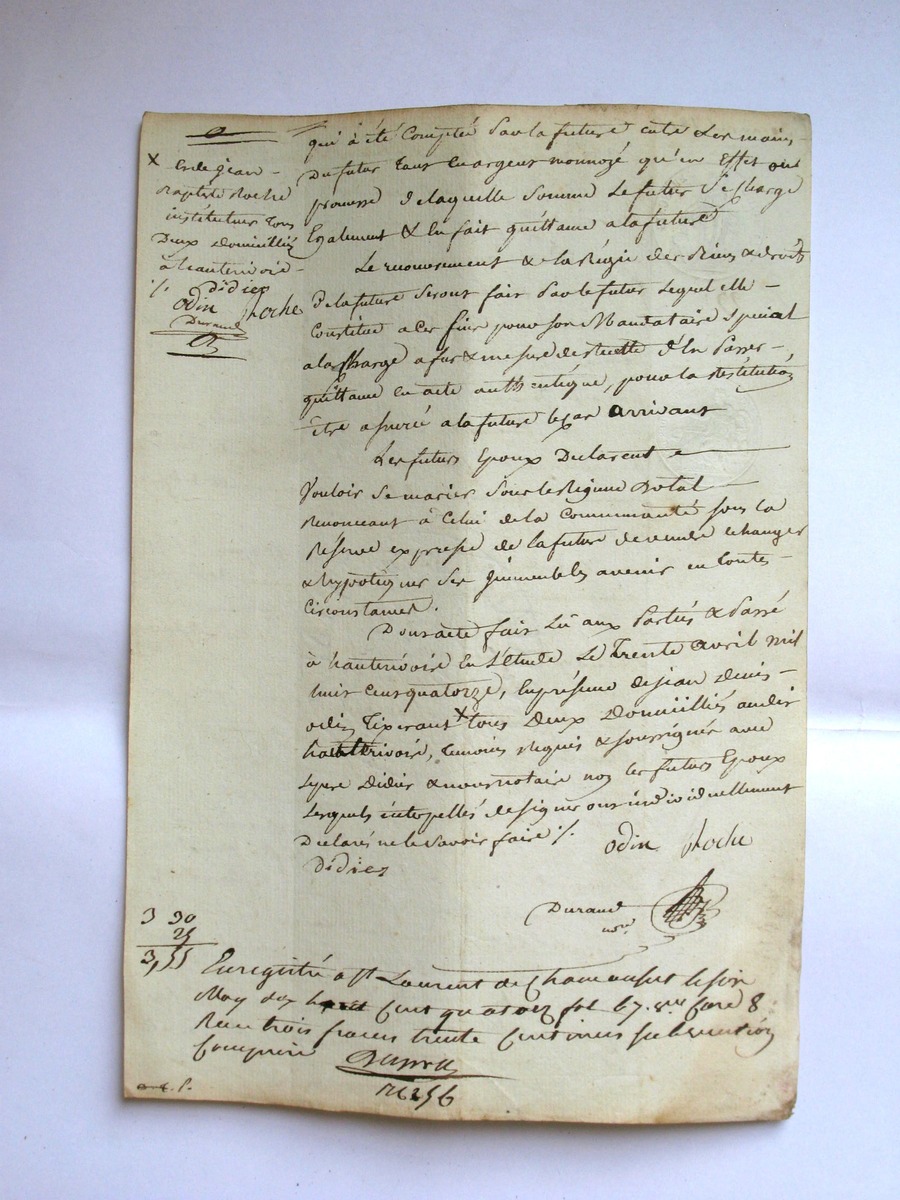 x et de jean -
Baptiste Roche
instituteur tous
Deux Domiciliés
à hauterivoire -
%. Didier
Odin Roche
Durand
qui a été Compté Par la future entre Les mains
Du futur Tant En argent monnoyé qu'en Effet ou
promesse de laquelle Somme Le futur Se Charge
Egalement & En fait quittance a la future
Le recouvrement & la Régie des Biens & droits
de la future Seront fait Par le futur Lequel elle -
Constitue a Ces fins pour son Mandataire Spécial
a la Charge a fur & mesure de d'En Passer -
quittance en acte authentique, pour la Restitution
Etre assuré a la future le cas arrivant
Les futurs Epoux Declarent
Vouloir Se marier Sous le Régime Dotal
Renonceant à Celui de la Communauté sous la
Réserve expresse de la future de vendre echanger
& hypotéquer Ses Immeubles avenir en toutes -
Circonstances.
Dont acte fait Lû aux Parties & Passé
à hauterivoire En L'étude Le Trente avril mil
huit Cent quatorze, En présence de jean Denis -
odin Tixerant x tous Deux Domiciliés audit
hauterivoire, Temoins Requis & soussignés avec
Le père Didier & nous notaire non les futurs Epoux
Lesquels interpellés de signer ont individuellement
Déclarés ne le savoir faire %.
Didier Odin Roche
Durand
nore
3 30
25
3,55
Enregistré a St Laurent de Chamousset le six
May dix huit Cent quatorze fol 67. Case 8
Reçu trois francs trente Centimes subvention
Comprise